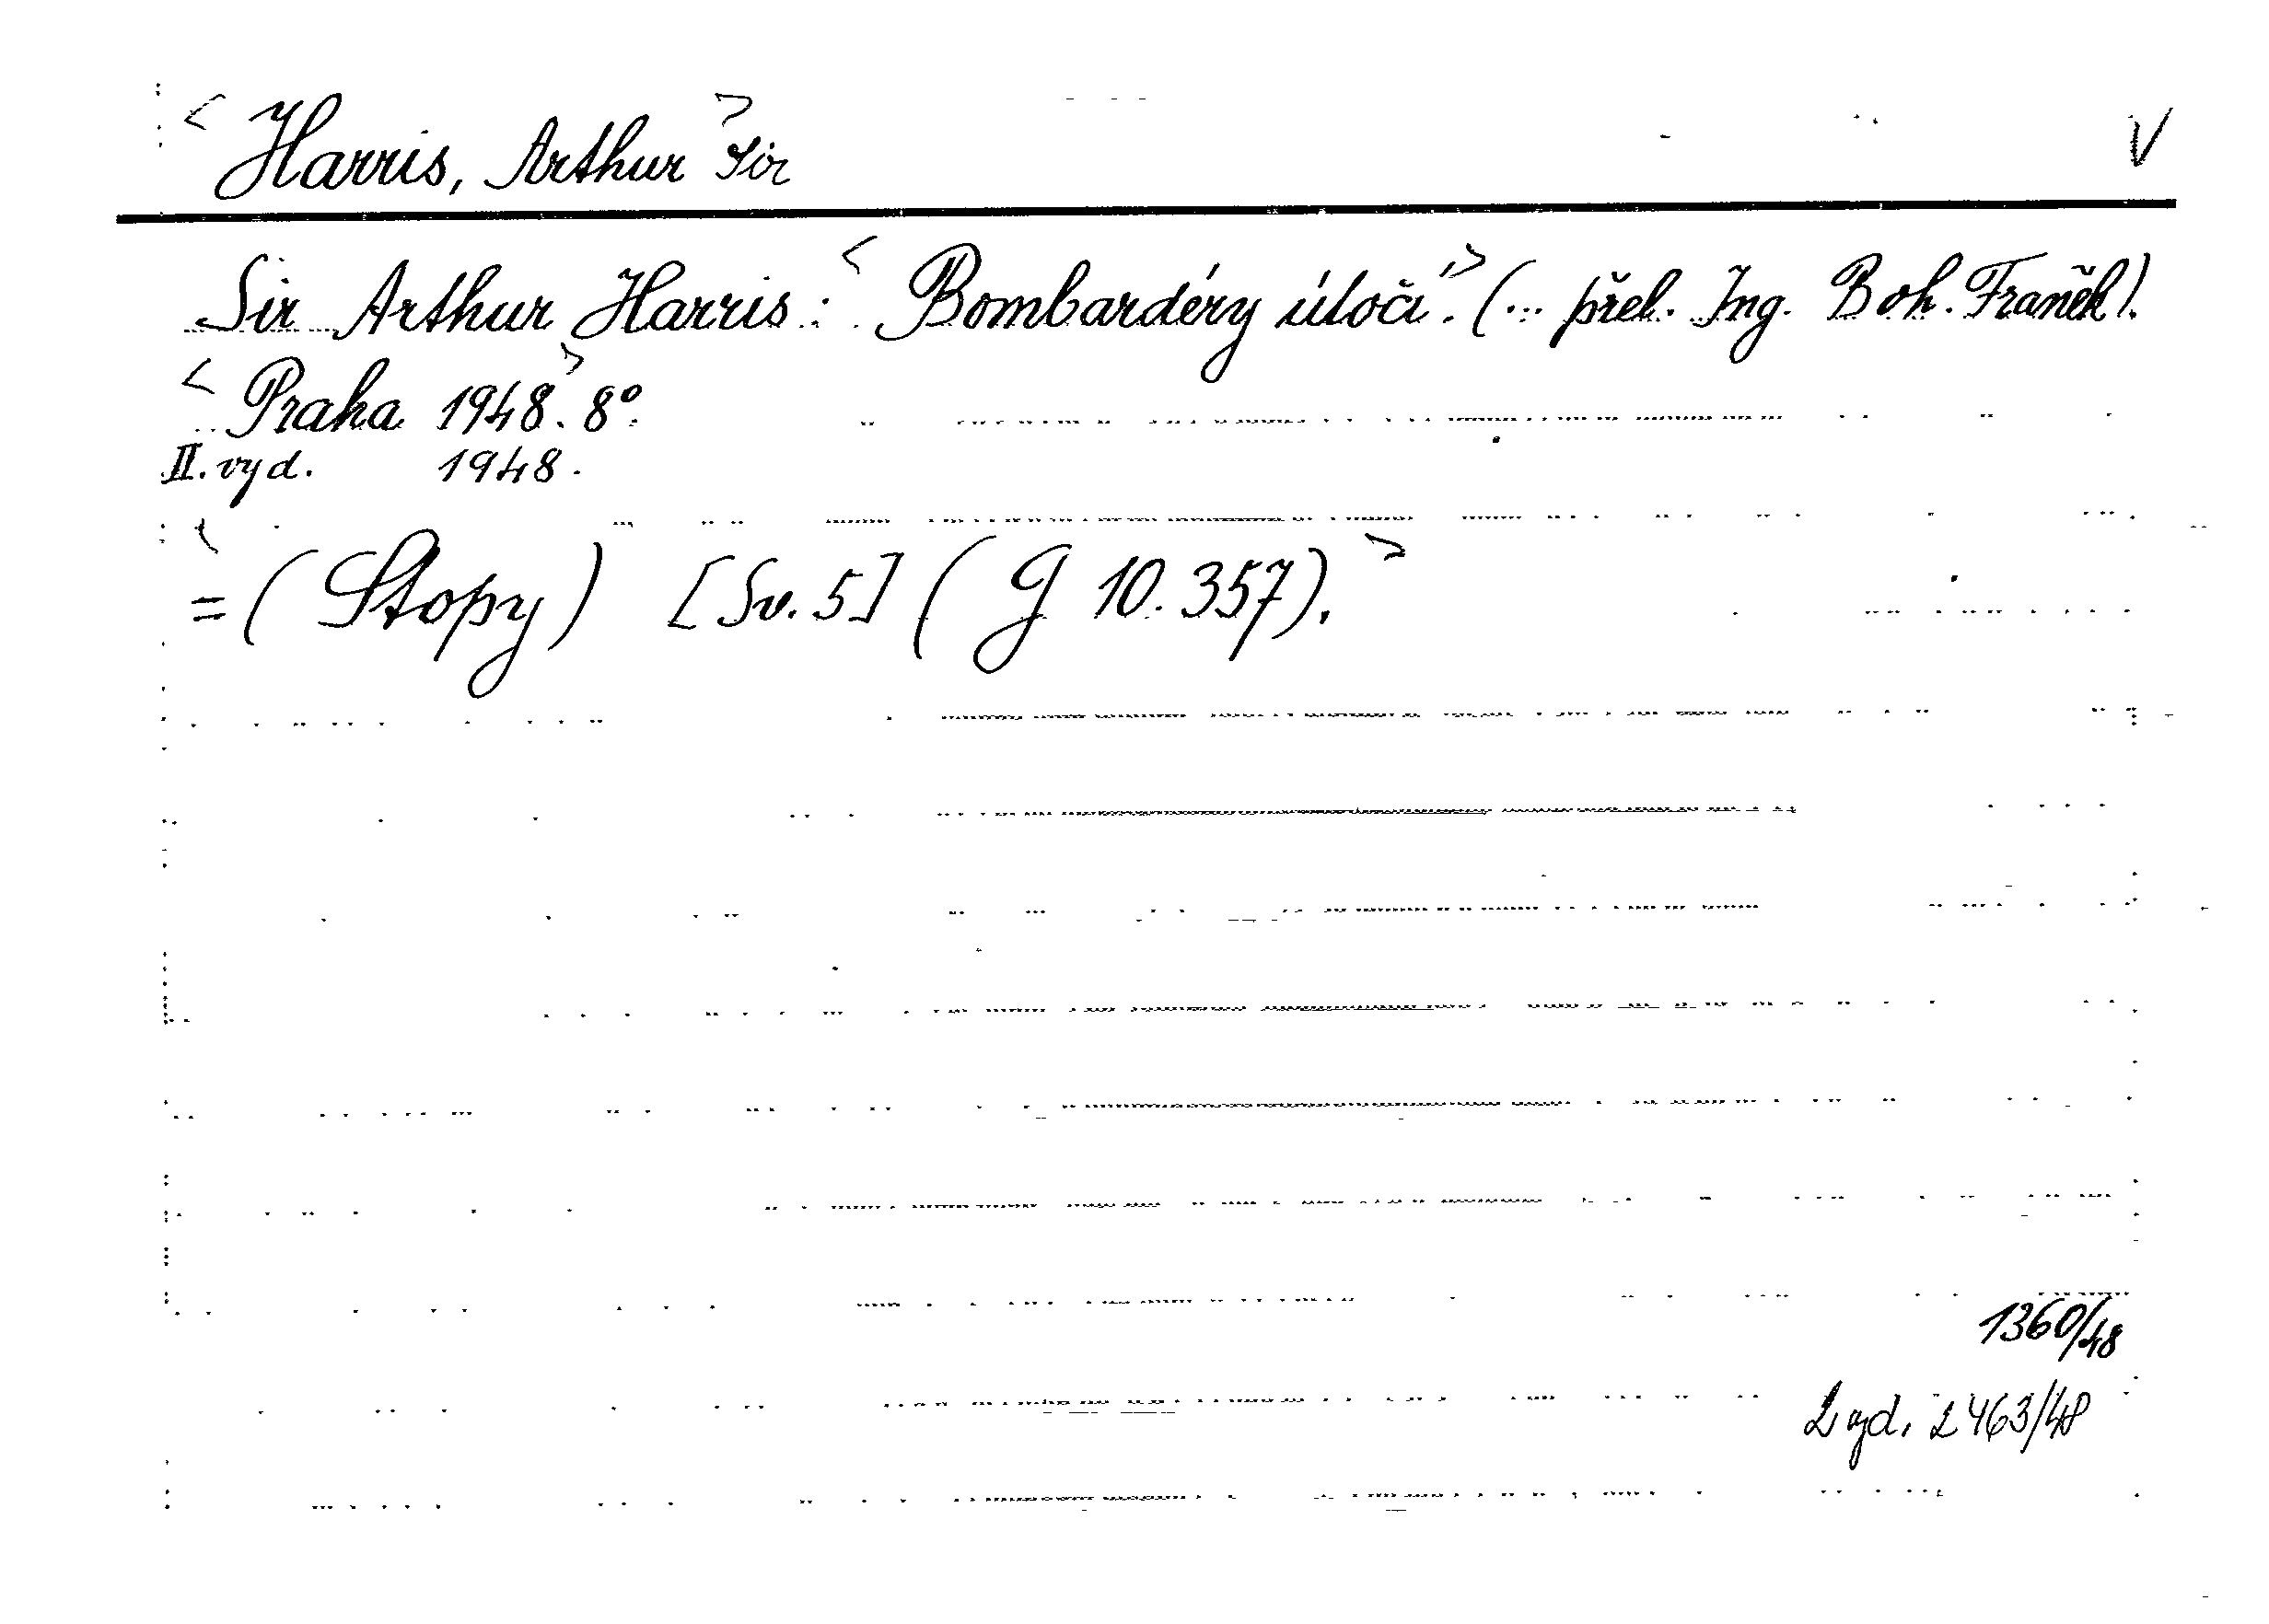 < Harris, Arthur > Sir V
Sir Arthur Harris: < Bombardéry útočí. > (... přel. Ing. Boh. Franěk).
< Praha 1948. > 8°.
II. vyd. 1948.
< = (Stopy) [Sv. 5] (G 10.357). >
1360/48
2 vyd. 2463/48